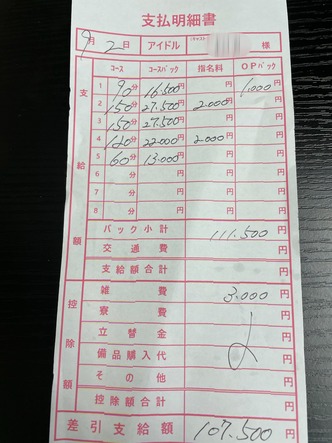 支払明細書
9月2日 アイドル 様
コース コースバック 指名料 OPバック
支給額
1 90分 16.500円 円 1.000円
2 150分 27.500円 2.000円 円
3 150分 27.500円 円 円
4 120分 22.000円 2.000円 円
5 60分 13.000円 円 円
6 分 円 円 円
7 分 円 円 円
8 分 円 円 円
バック小計 111.500円
交通費 円
支給額合計 円
控除額
雑費 3.000円
寮費 円
立替金 円
備品購入代 円
その他 円
控除額合計 円
差引支給額 107.500円